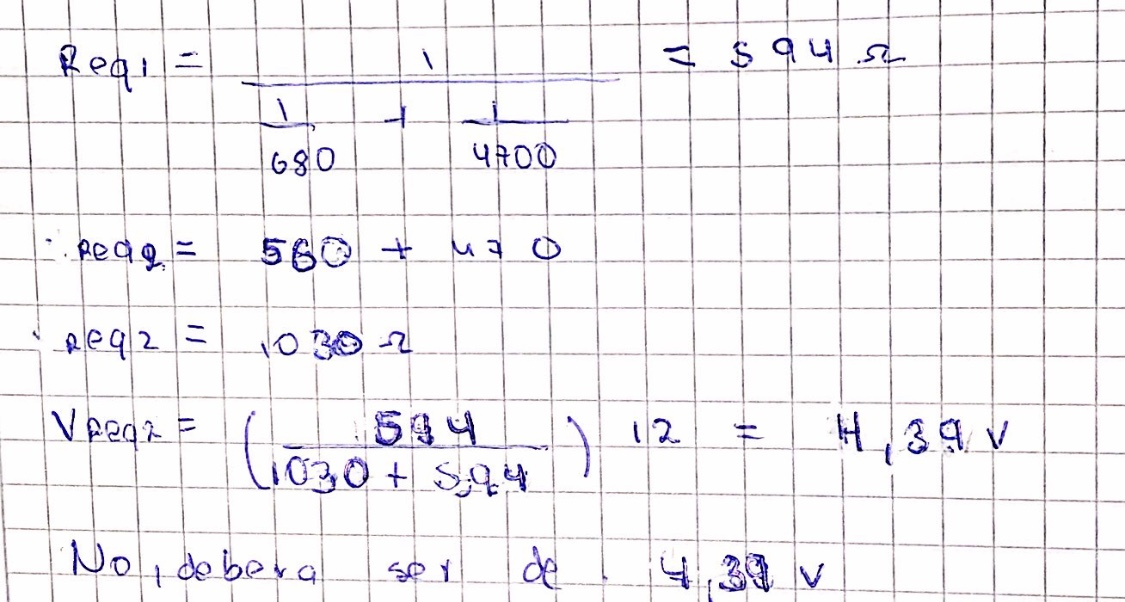 Req1 = 1 / (1/680 + 1/4700) = 594 Ω
∴ Req2 = 560 + 470
∴ Req2 = 1030 Ω
VReq2 = (594 / (1030 + 594)) 12 = 4,39 V
No, debera ser de 4,39 V